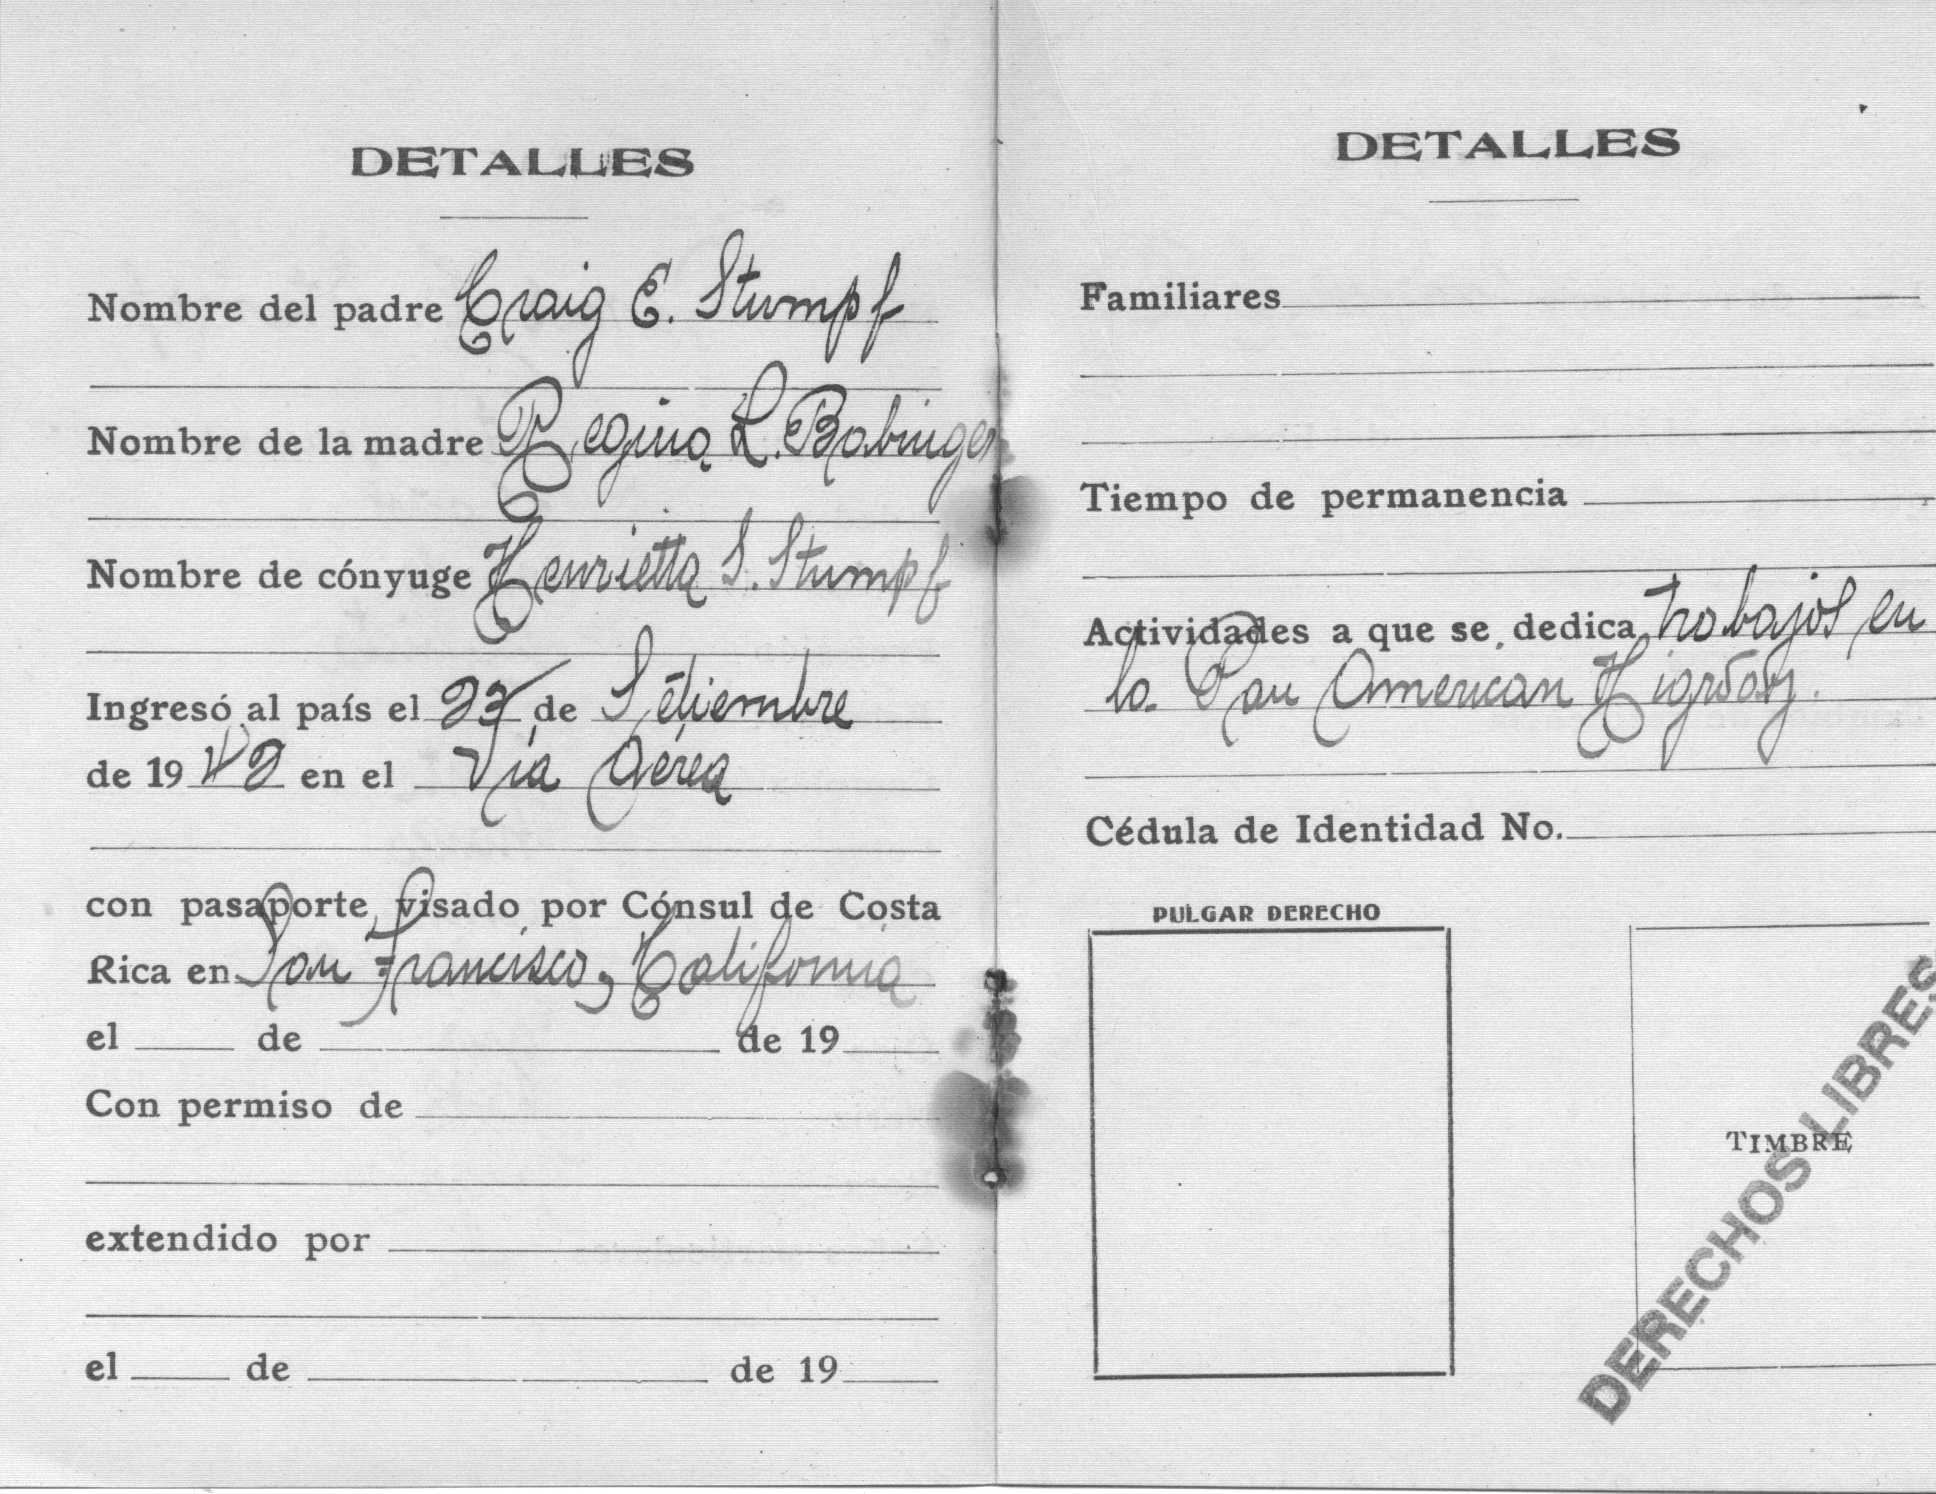 DETALLES
Nombre del padre Craig E. Stumpf
Nombre de la madre Regina L. Babinger
Nombre de cónyuge Henrietta S. Stumpf
Ingresó al país el 23 de Setiembre
de 1942 en el Vía Aérea
con pasaporte visado por Cónsul de Costa
Rica en San Francisco, California
el de de 19
Con permiso de
extendido por
el de de 19
DETALLES
Familiares
Tiempo de permanencia
Actividades a que se dedica trabajos en
la Pan American
Cédula de Identidad No.
PULGAR DERECHO
TIMBRE
DERECHOS LIBRES